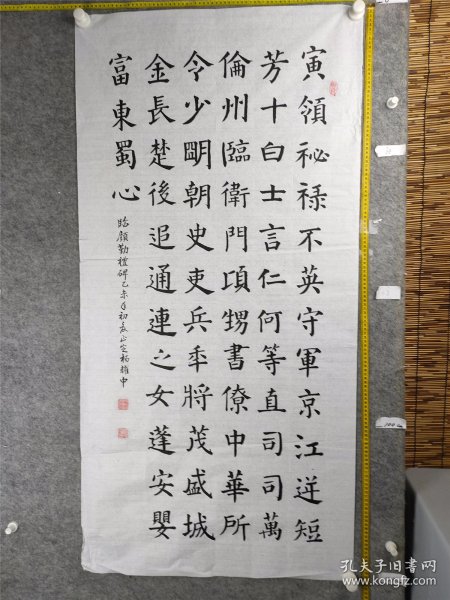 寅領祕禄不英守軍京江迸短
芳十白士言仁何等直司司萬
倫州臨衛門項甥書僚中華所
令少明朝史吏兵秊將茂盛城
金長楚後追通連之女蓬安嬰
富東蜀心
臨顏勤禮碑乙未年初夏
孔夫子旧书网
www.kongfz.com